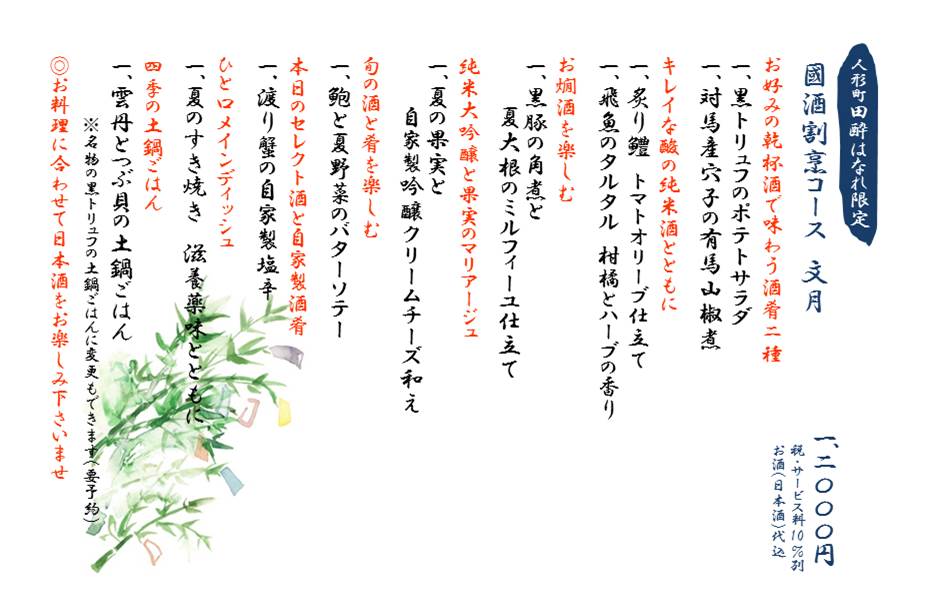 人形町田酔はなれ限定
國酒割烹コース　文月
お好みの乾杯酒で味わう酒肴二種
一、黒トリュフのポテトサラダ
一、対馬産穴子の有馬山椒煮
キレイな酸の純米酒とともに
一、炙り鱧　トマトオリーブ仕立て
一、飛魚のタルタル　柑橘とハーブの香り
お燗酒を楽しむ
一、黒豚の角煮と
夏大根のミルフィーユ仕立て
純米大吟醸と果実のマリアージュ
一、夏の果実と
自家製吟醸クリームチーズ和え
旬の酒と肴を楽しむ
一、鮑と夏野菜のバターソテー
本日のセレクト酒と自家製酒肴
一、渡り蟹の自家製塩辛
ひと口メインディッシュ
一、夏のすき焼き　滋養薬味とともに
四季の土鍋ごはん
一、雲丹とつぶ貝の土鍋ごはん
※名物の黒トリュフの土鍋ごはんに変更もできます(要予約)
◎お料理に合わせて日本酒をお楽しみ下さいませ
一、二〇〇〇円
税・サービス料10%別
お酒(日本酒)代込